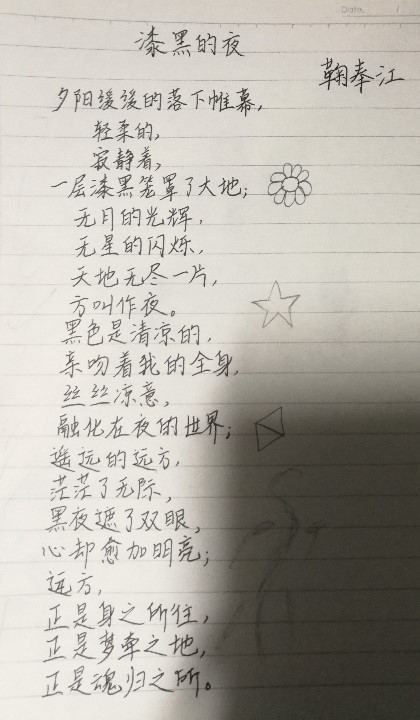 Date.
漆黑的夜
鞠奉江
夕阳缓缓的落下帷幕，
轻柔的，
寂静着，
一层漆黑笼罩了大地；
无月的光辉，
无星的闪烁，
天地无尽一片，
方叫作夜。
黑色是清凉的，
亲吻着我的全身，
丝丝凉意，
融化在夜的世界；
遥远的远方，
茫茫了无际，
黑夜遮了双眼，
心却愈加明亮；
远方，
正是身之所往，
正是梦牵之地，
正是魂归之所。